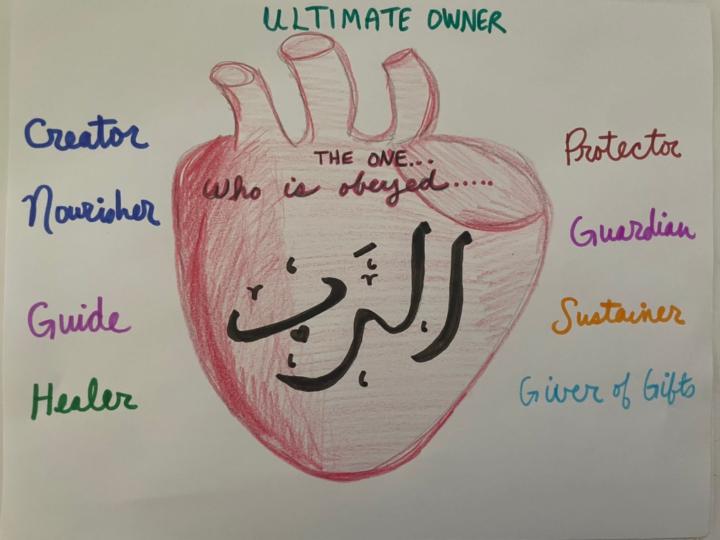 ULTIMATE OWNER
Creator
Protector
THE ONE...
Who is obeyed.....
Nourisher
Guardian
الرَّبّ
Guide
Sustainer
Healer
Giver of Gifts